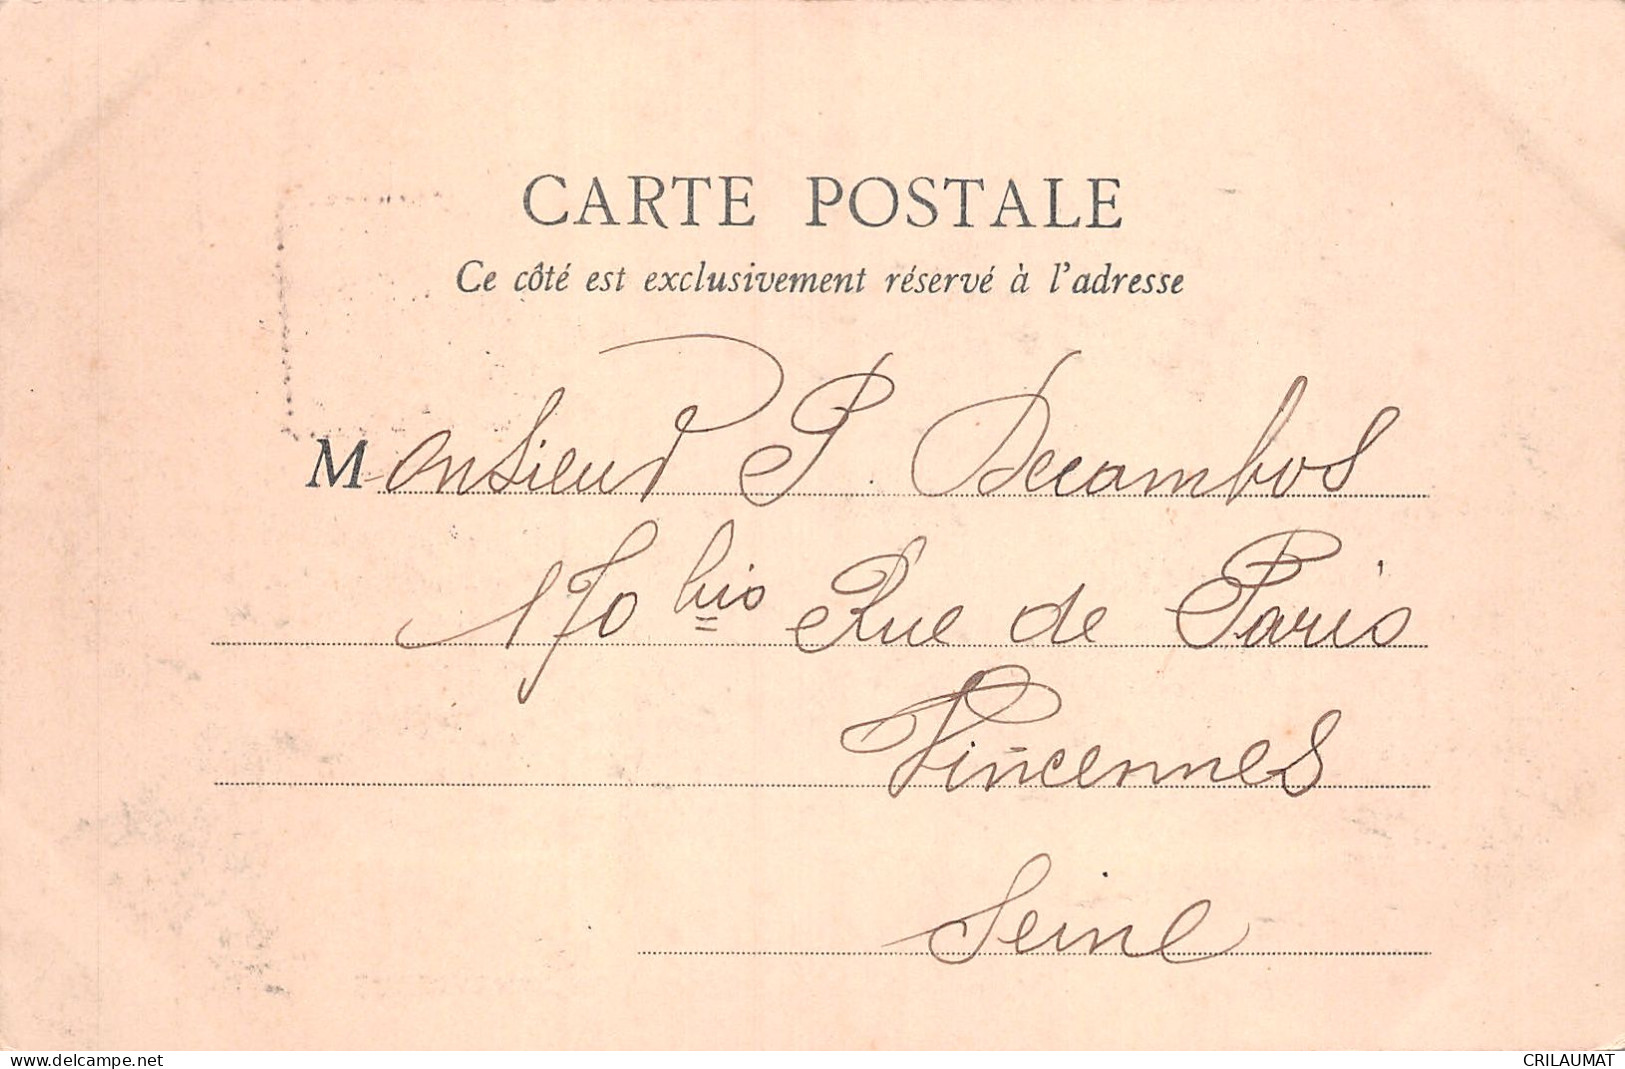 CARTE POSTALE
Ce côté est exclusivement réservé à l'adresse
Monsieur P. Decambos
170 bis Rue de Paris
Vincennes
Seine
www.delcampe.net
CRILAUMAT